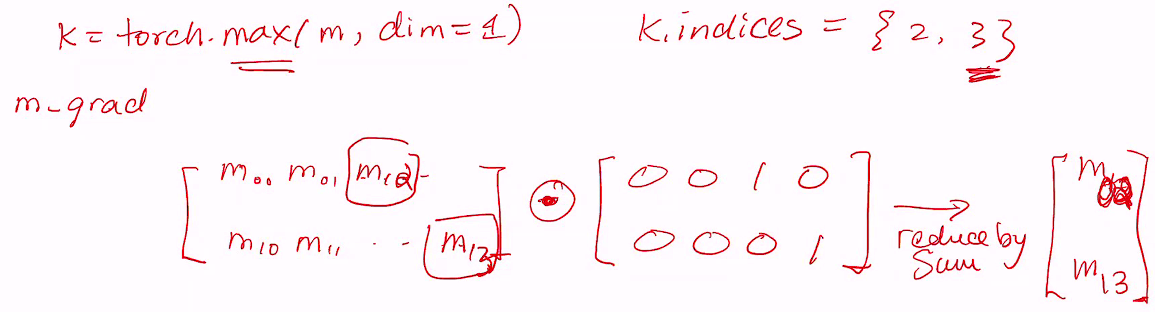 K = torch.max(m, dim=1) K.indices = {2, 3}
m_grad
m00 m01 0 0 1 0 m
m10 m11 .. m13 0 0 0 1 reduce by sum m13